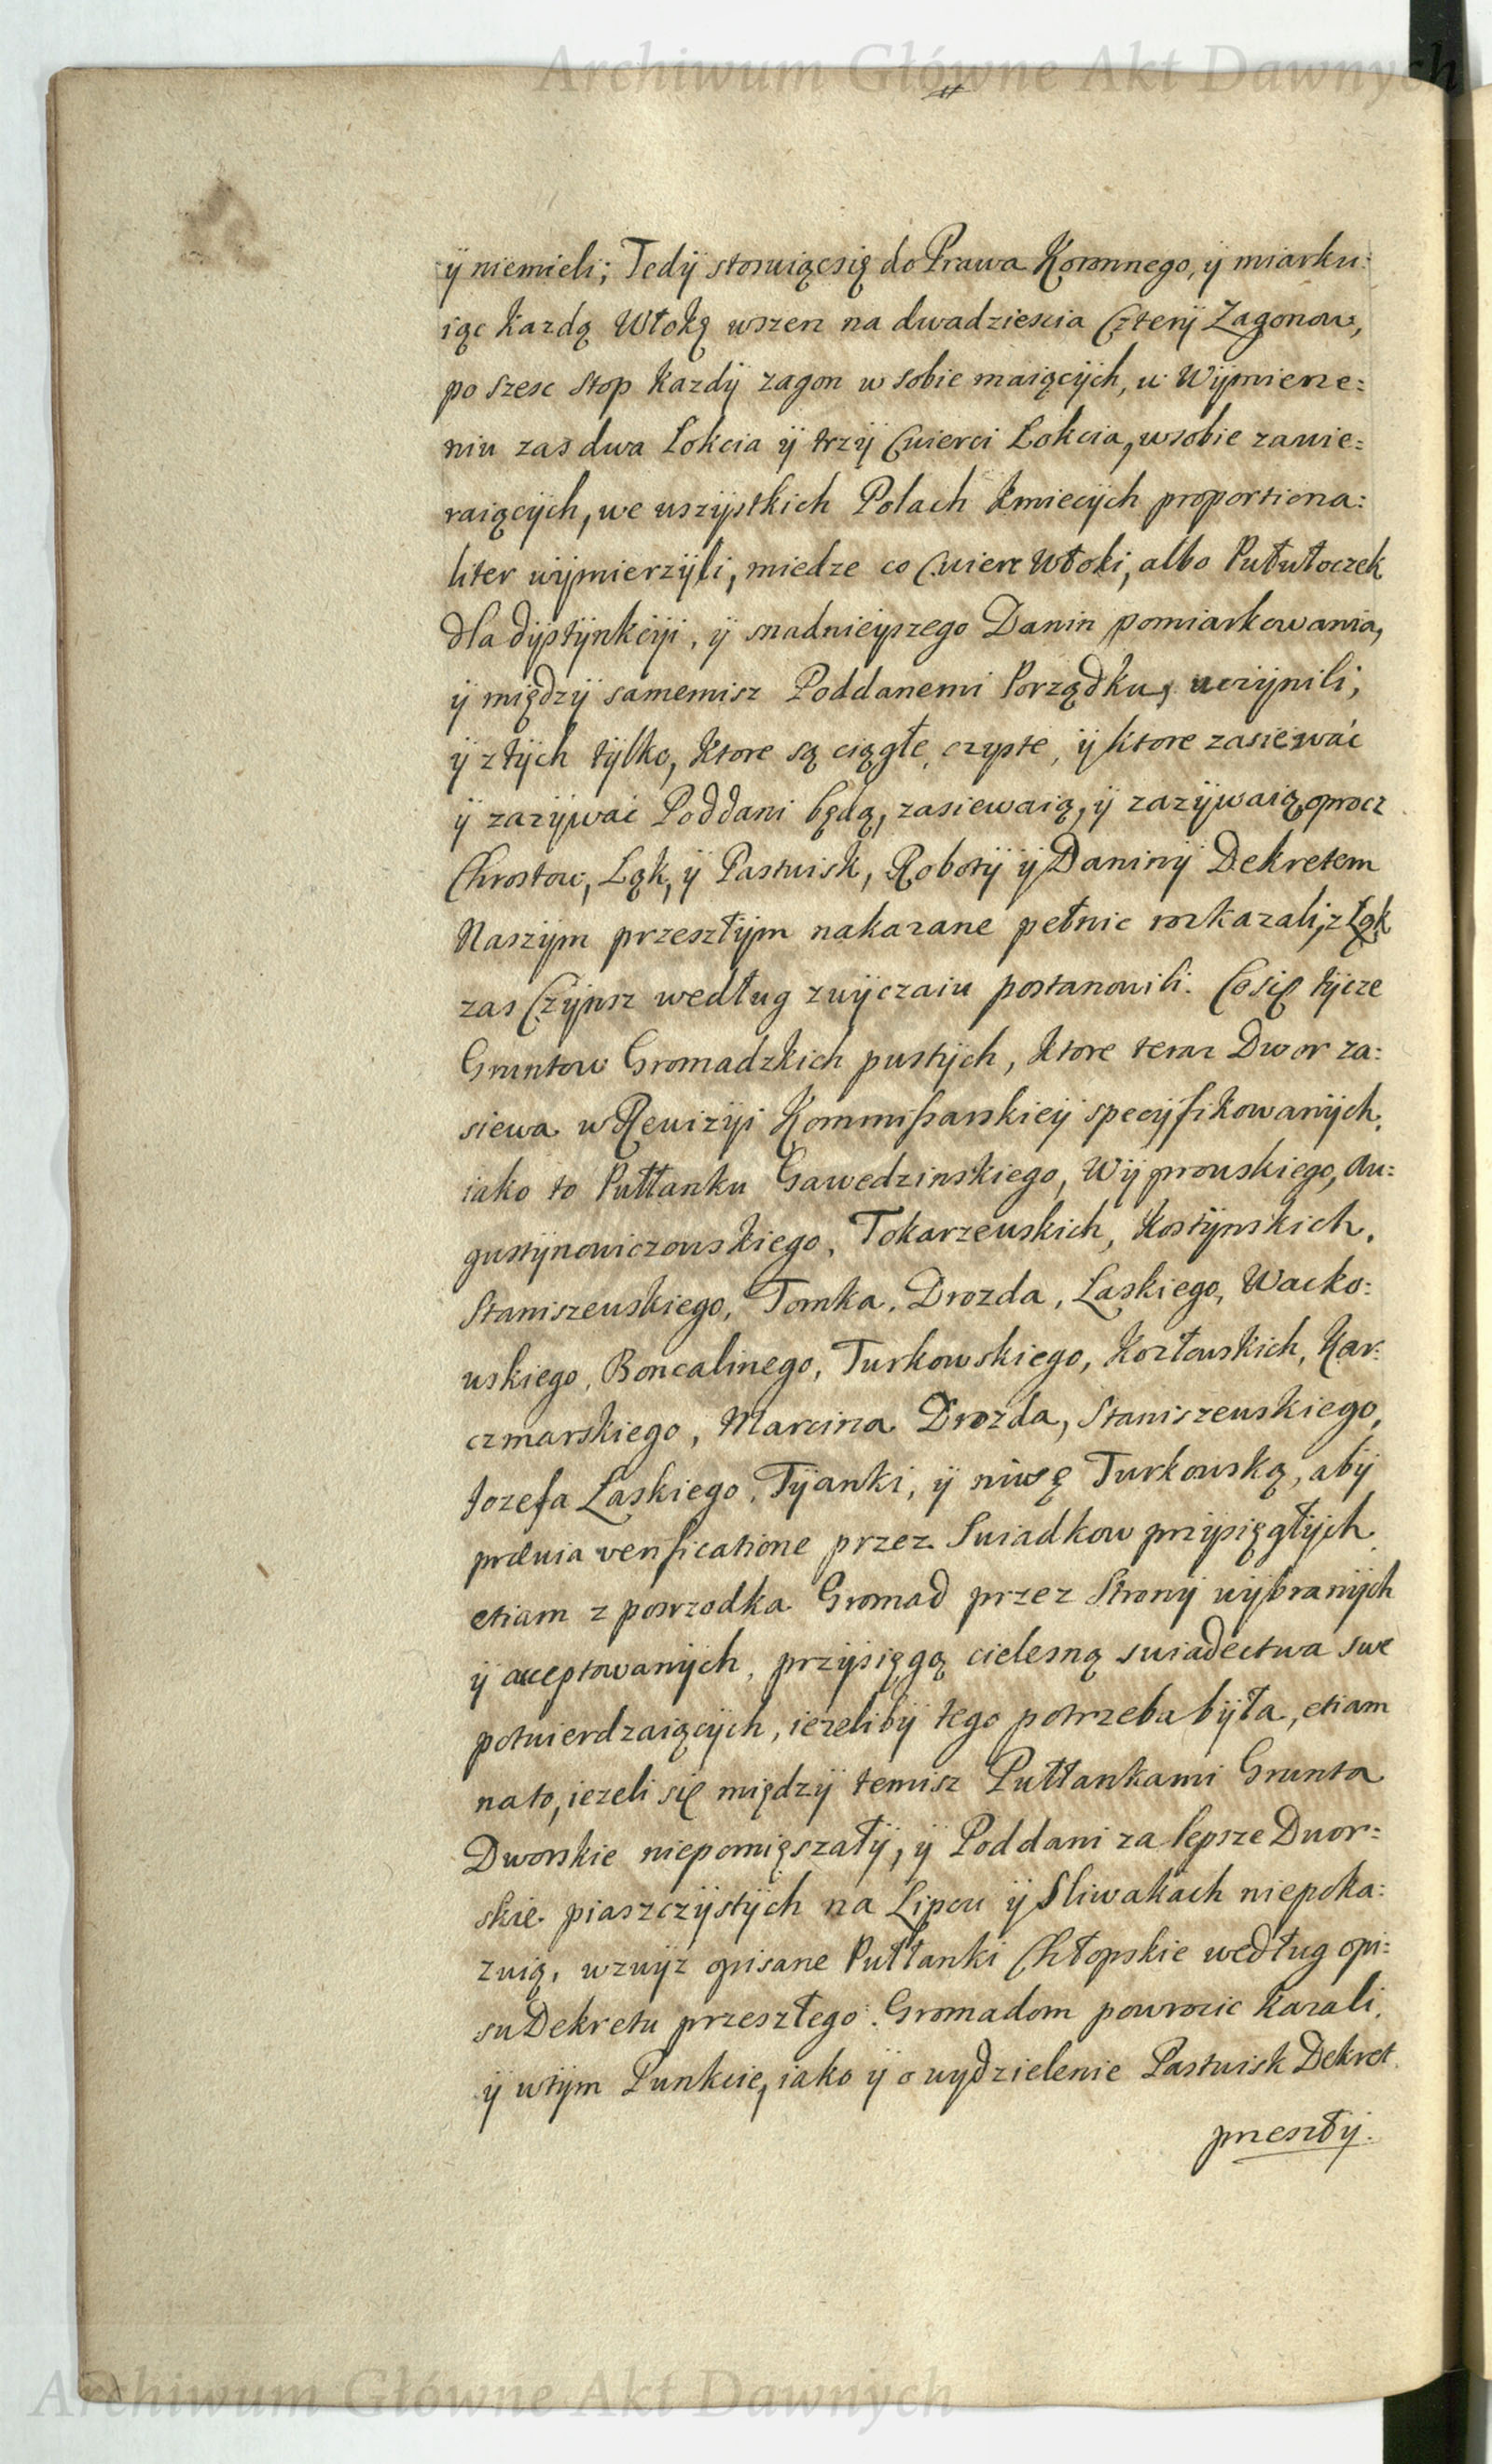 Archiwum Główne Akt Dawnych
ÿ niemieli; Tedÿ stosuiącsię do Prawa Koronnego, ÿ miarku:
iąc każdą Włokę wszerz na dwadziescia Czterÿ Zagonow,
po szesc stop każdÿ zagon w sobie maiącÿch, w Wÿmierze:
niu zas dwa Łokcia ÿ trzÿ Cwierci Łokcia, wsobie zawie:
raiącÿch, we wszÿstkich Polach Kmiecÿch proportiona:
liter wÿmierzÿli, miedze co Cwierc Włoki, albo Pułwłoczek
dla dÿstÿnkcÿi, ÿ snadnieÿszego Danin pomiarkowania,
ÿ międzÿ samemisz Poddanemi Porządku, uczÿnili,
ÿ ztÿch tÿlko, ktore są ciągłe, czyste, ÿ ktore zasiewać
ÿ zazÿwać Poddani będą, zasiewaią, ÿ zazÿwaią, oprocz
Chrostow, Łąk, ÿ Pastwisk, Robotÿ ÿ Daninÿ Dekretem
Naszÿm przeszłÿm nakazane pełnic rozkazali, z Łąk
zas Czÿnsz według zwÿczaiu postanowili. Co się tÿcze
Gruntow Gromadzkich pustÿch, ktore teraz Dwor za:
siewa w Rewizÿi Kommissarskieÿ specÿfikowanÿch,
iako to Pułłanku Gawedzinskiego, Wÿprowskiego, Au:
gustÿnowiczowskiego, Tokarzewskich, Kostÿnskich,
Staniszewskiego, Tomka, Drozda, Laskiego, Wacko:
wskiego, Boncalinego, Turkowskiego, Kozłowskich, Kar:
czmarskiego, Marcina Drozda, Staniszewskiego,
Jozefa Laskiego, Tÿanki, ÿ niwę Turkowską, abÿ
prævia verificatione przez Swiadkow przÿsięgłÿch
etiam z posrzodka Gromad przez Stronÿ wÿbranÿch
ÿ acceptowanÿch, przÿsięgą cielesną swiadectwa swe
potwierdzaiącÿch, iezelibÿ tego potrzeba bÿła, etiam
na to, iezeli się międzÿ temisz Pułłankami Grunta
Dworskie niepomięszałÿ, ÿ Poddani za lepsze Dwor:
skie piaszczÿstÿch na Lipcu ÿ Sliwakach niepoka:
zuią, wzwÿż opisane Pułłanki Chłopskie według opi:
su Dekretu przeszłego Gromadom powrocic kazali,
ÿ wtÿm Punkcie, iako ÿ o wydzielenie Pastwisk Dekret
przeszłÿ.
Archiwum Główne Akt Dawnych